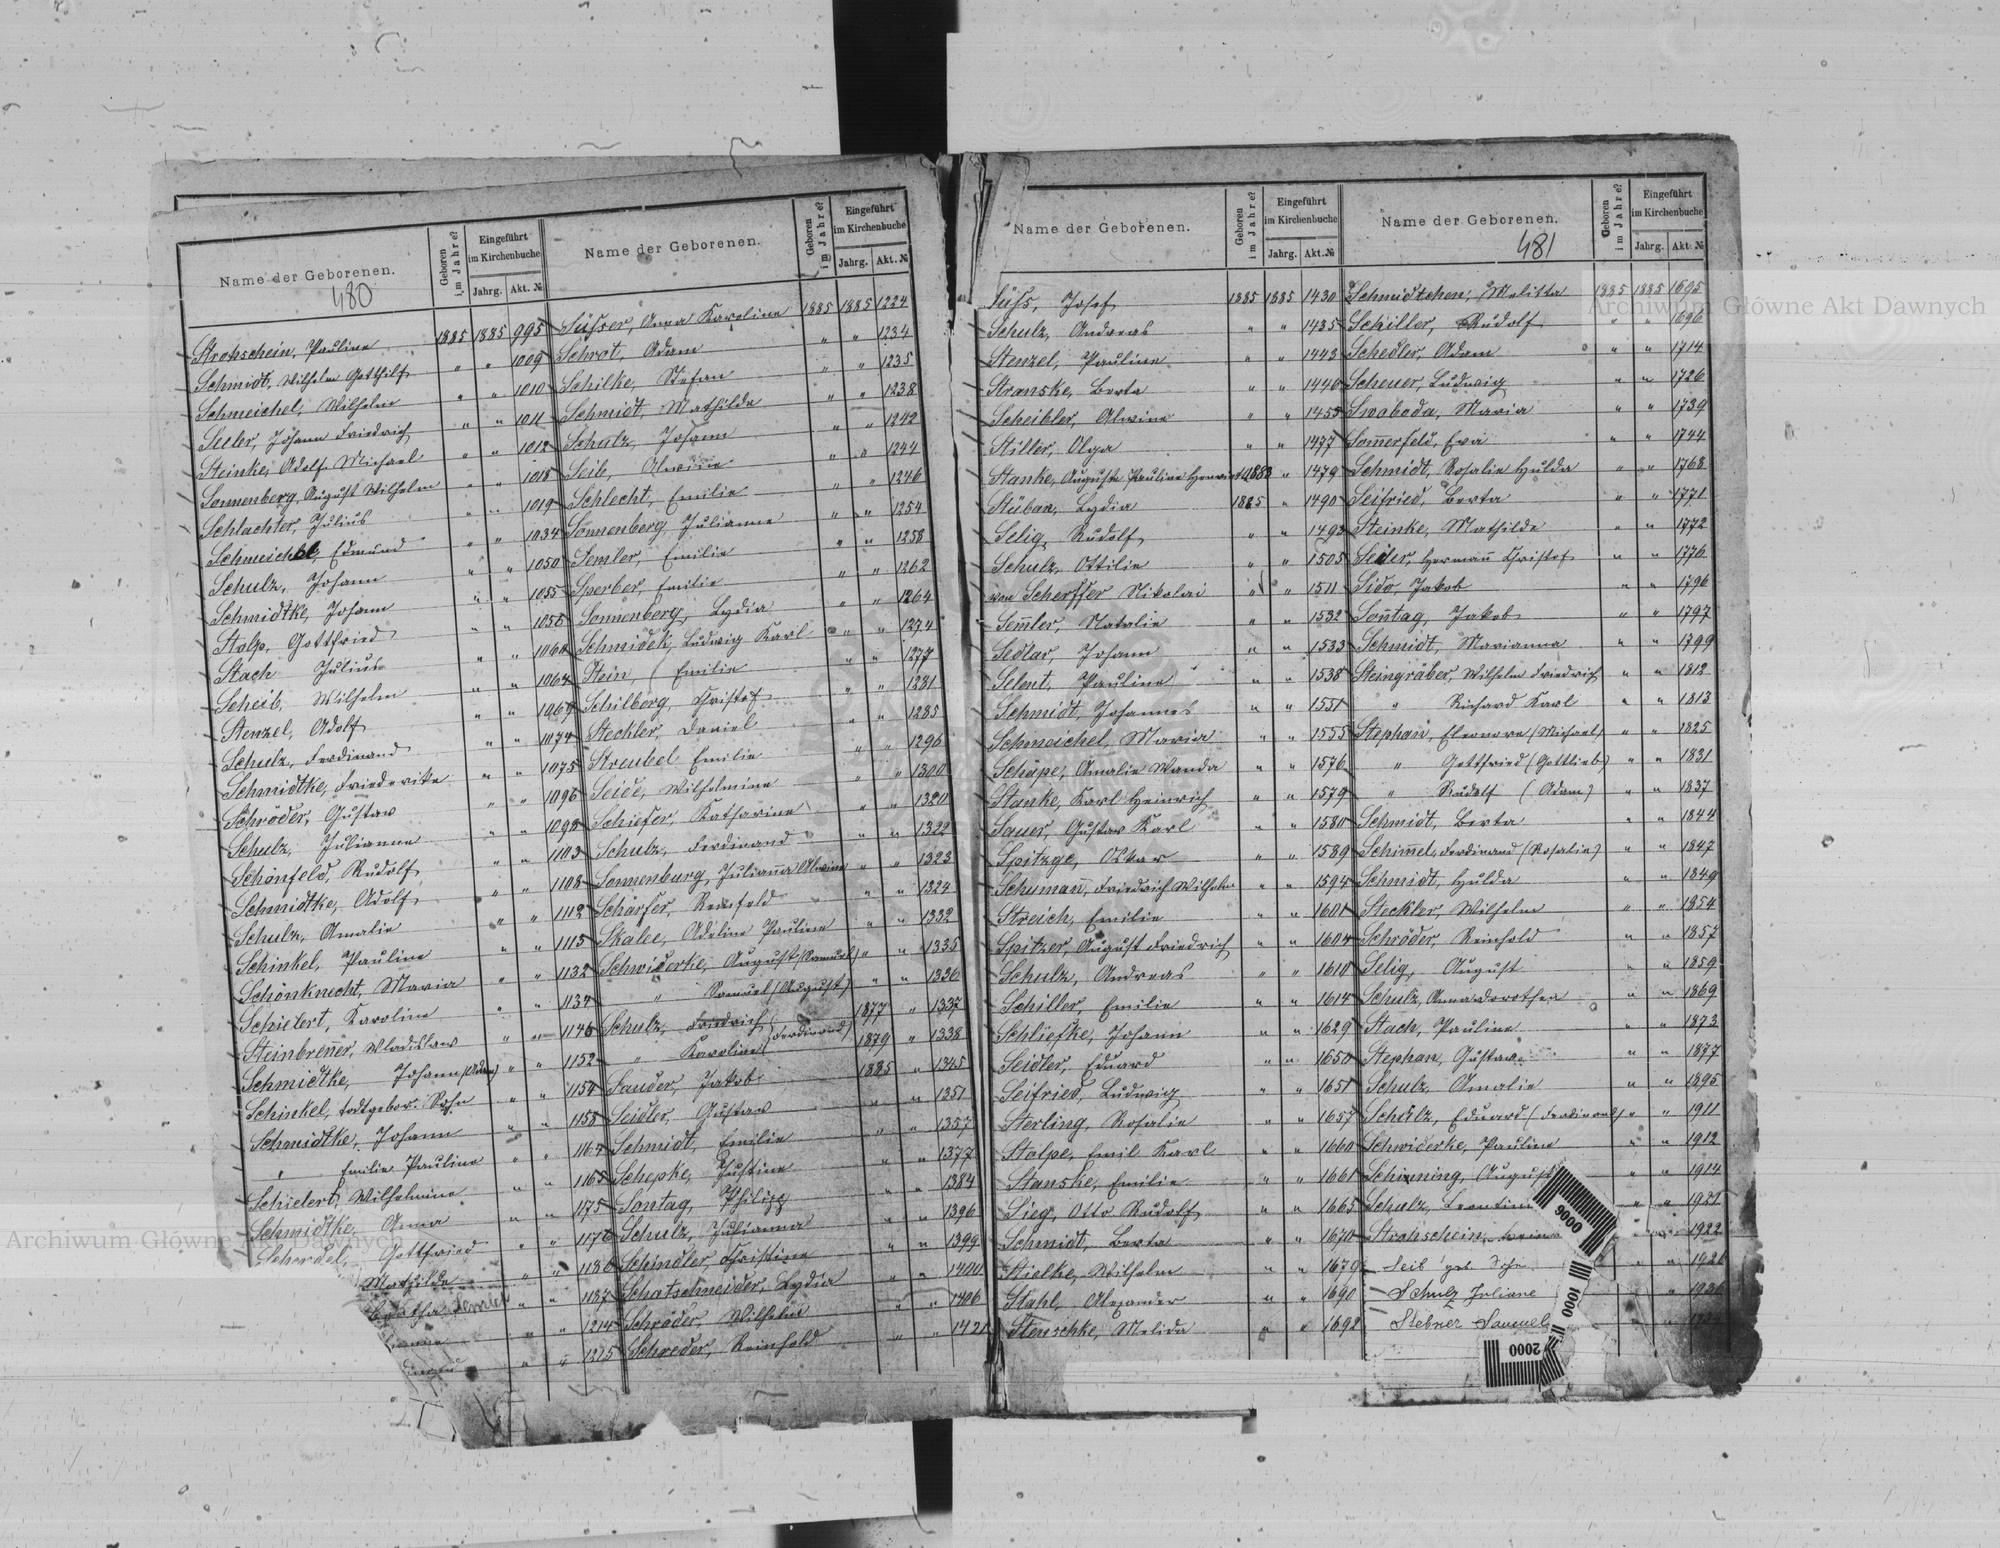 Name der Geborenen.
480
Geboren im Jahre?
Eingeführt im Kirchenbuche
Jahrg. Akt. №
Strohschein, Pauline 1885 1885 995
Schmidt, Wilhelm Gotthilf " " 1009
Schmeichel, Wilhelm " " 1010
Seeler, Johann Friedrich " " 1011
Steinke, Adolf Michael " " 1012
Sonnenberg, August Wilhelm " " 1018
Schlachter, Julius " " 1019
Schmeichel, Edmund " " 1034
Schulz, Johann " " 1050
Schmidtke, Johann " " 1055
Stolp, Gottfried " "
Stach Julius " "
Scheib, Wilhelm " " 1064
Stenzel, Adolf " " 1069
Schulz, Ferdinand " " 1074
Schmidtke, Friederike " " 1075
Schröder, Gustav " " 1096
Schulz, Julianna " "
Schönfeld, Rudolf " " 1103
Schmidtke, Adolf " " 1108
Schulz, Amalie " " 1112
Schinkel, Pauline " " 1115
Schönknecht, Maria " " 1132
Schielert, Karoline " " 1134
Steinbrenner, Wladislaw " " 1146
Schmidtke, Johann (Adam) " " 1152
Schinkel, todtgebor. Sohn " " 1154
Schmidtke, Johann " " 1158
" Emilie Pauline " " 1164
Schielert, Wilhelmine " " 1165
Schmidtke, Anna " " 1175
Gottfried " " 1176
Mathilde " " 1186
" " 1187
" " 1214
" " 1215
Name der Geborenen.
Geboren im Jahre?
Eingeführt im Kirchenbuche
Jahrg. Akt. №
Süsser, Anna Karoline 1885 1885 1224
Schrot, Adam " " 1234
Schilke, Stefan " " 1235
Schmidt, Mathilde " " 1238
Schulz, Johann " " 1242
Seib, Alwine " " 1244
Schlecht, Emilie " " 1246
Sonnenberg, Julianne " " 1254
Semler, Emilie " " 1258
Sperber, Emilie " " 1262
Sonnenberg, Lydia " " 1264
Schmidek, Ludwig Karl " " 1274
Stein, Emilie " " 1277
Schilberg, Christof " " 1281
Stechler, Daniel " " 1285
Streubel Emilie " " 1296
Seide, Wilhelmine " " 1300
Schiefer, Katharine " " 1320
Schulz, Ferdinand " " 1322
Sonnenburg, Julianna Alwine " " 1323
Schärfer, Reinhold " " 1324
Skalee, Adeline Pauline " " 1332
Schwiderke, August (Samuel) " " 1335
" Samuel (August) " " 1336
Schulz, Friedrich (Ferdinand) 1877 " 1337
" Karoline 1879 " 1338
Sauder, Jakob 1885 " 1345
Seidler, Gustav " " 1351
Schmidt, Emilie " " 1357
Schepke, Justine " " 1377
Sontag, Philipp " " 1384
Schulz, Julianna " " 1396
Schindler, Christine " " 1399
Schatschneider, Lydia " "
Schröder, Wilhelm " " 1406
Schreder, Reinhold " " 1421
Name der Geborenen.
Geboren im Jahre?
Eingeführt im Kirchenbuche
Jahrg. Akt.№
Süss, Josef 1885 1885 1430
Schulz, Andreas " " 1435
Stenzel, Pauline " " 1443
Stranske, Berta " " 1446
Scheibler, Alwine " " 1455
Stiller, Olga " " 1477
Stanke, Auguste Pauline 1883 " 1479
Stüban, Lydia 1885 " 1490
Selig, Rudolf " " 1493
Schulz, Ottilie " " 1505
von Scherffer Nikolai " " 1511
Semler, Natalie " " 1532
Sedlar, Johann " " 1533
Selent, Pauline " " 1538
Schmidt, Johannes " " 1551
Schmeichel, Maria " " 1555
Schäpe, Amalie Wanda " " 1576
Stanke, Karl Heinrich " " 1579
Sauer, Gustav Karl " " 1580
Spitzge, Oskar " " 1589
Schumann, Friedrich Wilhelm " " 1594
Streich, Emilie " " 1601
Spitzer, August Friedrich " " 1604
Schulz, Andreas " " 1610
Schiller, Emilie " " 1614
Schliefke, Johann " " 1629
Seidler, Eduard " " 1650
Seifried, Ludwig " " 1651
Sterling, Rosalie " " 1657
Stolpe, Emil Karl " " 1660
Stanske, Emilie " " 1661
Sieg, Otto Rudolf " " 1665
Schmidt, Berta " " 1670
Stielke, Wilhelm " " 1679
Stahl, Alexander " " 1690
Stenschke, Melida " " 1692
Name der Geborenen.
481
Geboren im Jahre?
Eingeführt im Kirchenbuche
Jahrg. Akt. №
Schmidtchen, Melitta 1885 1885 1695
Schiller, Rudolf " " 1696
Schedler, Adam " " 1714
Scheuer, Ludwig " " 1726
Swoboda, Maria " " 1739
Somerfeld, Eva " " 1744
Schmidt, Rosalie Hulda " " 1768
Seifried, Berta " " 1771
Steinke, Mathilde " " 1772
Seiler, Hermann Christof " " 1776
Sido, Jakob " " 1796
Sontag, Jakob " " 1797
Schmidt, Marianna " " 1799
Steingräber, Wilhelm Friedrich " " 1812
" Richard Karl " " 1813
Stephan, Eleonore (Michael) " " 1825
" Gottfried (Gottlieb) " " 1831
" Rudolf (Adam) " " 1837
Schmidt, Berta " " 1844
Schimmel, Ferdinand (Rosalie) " " 1847
Schmidt, Hulda " " 1849
Steckler, Wilhelm " " 1854
Schröder, Reinhold " " 1857
Selig, August " " 1859
Schulz, Anna Dorothea " " 1869
Stach, Pauline " " 1873
Stephan, Gustav " " 1877
Schulz, Amalie " " 1895
Schulz, Eduard (Ferdinand) " " 1911
Schwiderke, Pauline " " 1912
Schirning, August " " 1914
Schulz, Leontine " " 1921
Strohschein, " " 1922
Seib
Schulz Juliane
Stebner Samuel
9000
1000
2000
Archiwum Główne Akt Dawnych
Archiwum Główne Akt Dawnych